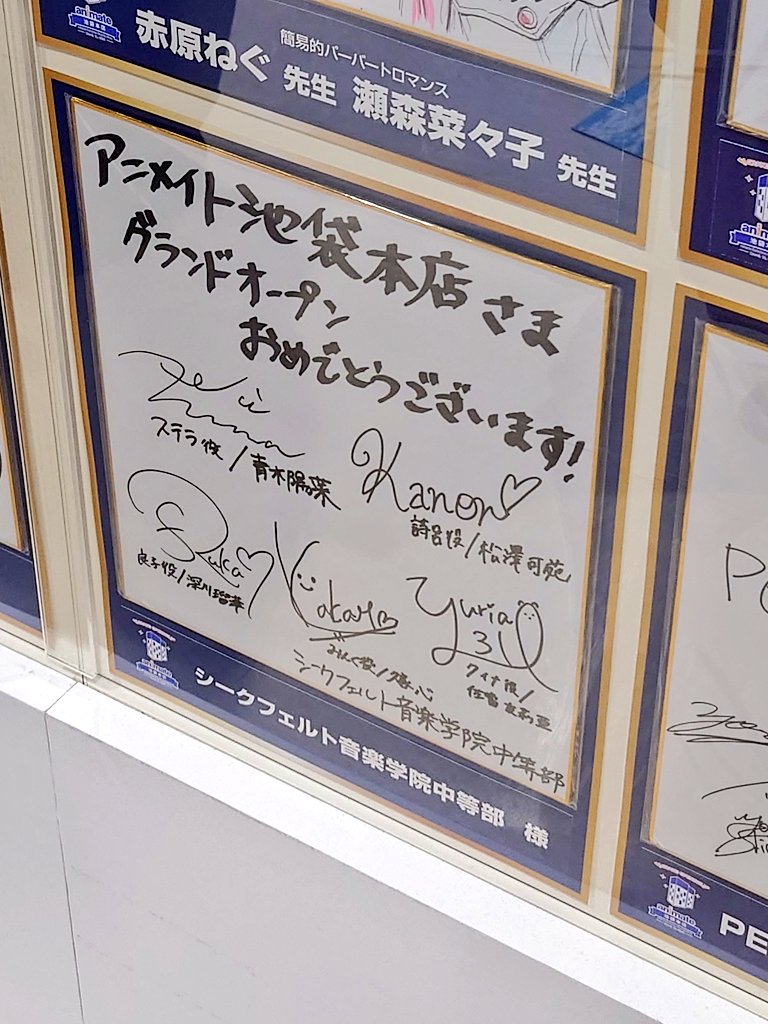 animate
赤原ねぐ 先生
簡易的パーパートロマンス
瀬森菜々子 先生
アニメイト池袋本店さま
グランドオープン
おめでとうございます!
ステラ役/青木陽菜
Kanon♡
詩呂役/松澤可苑
Ruka♡
良子役/深川瑠華
みんく役/久家心
Yuria
クイナ役/佐當友莉亜
シークフェルト音楽学院中等部
animate
シークフェルト音楽学院中等部 様
animate
animate
PE